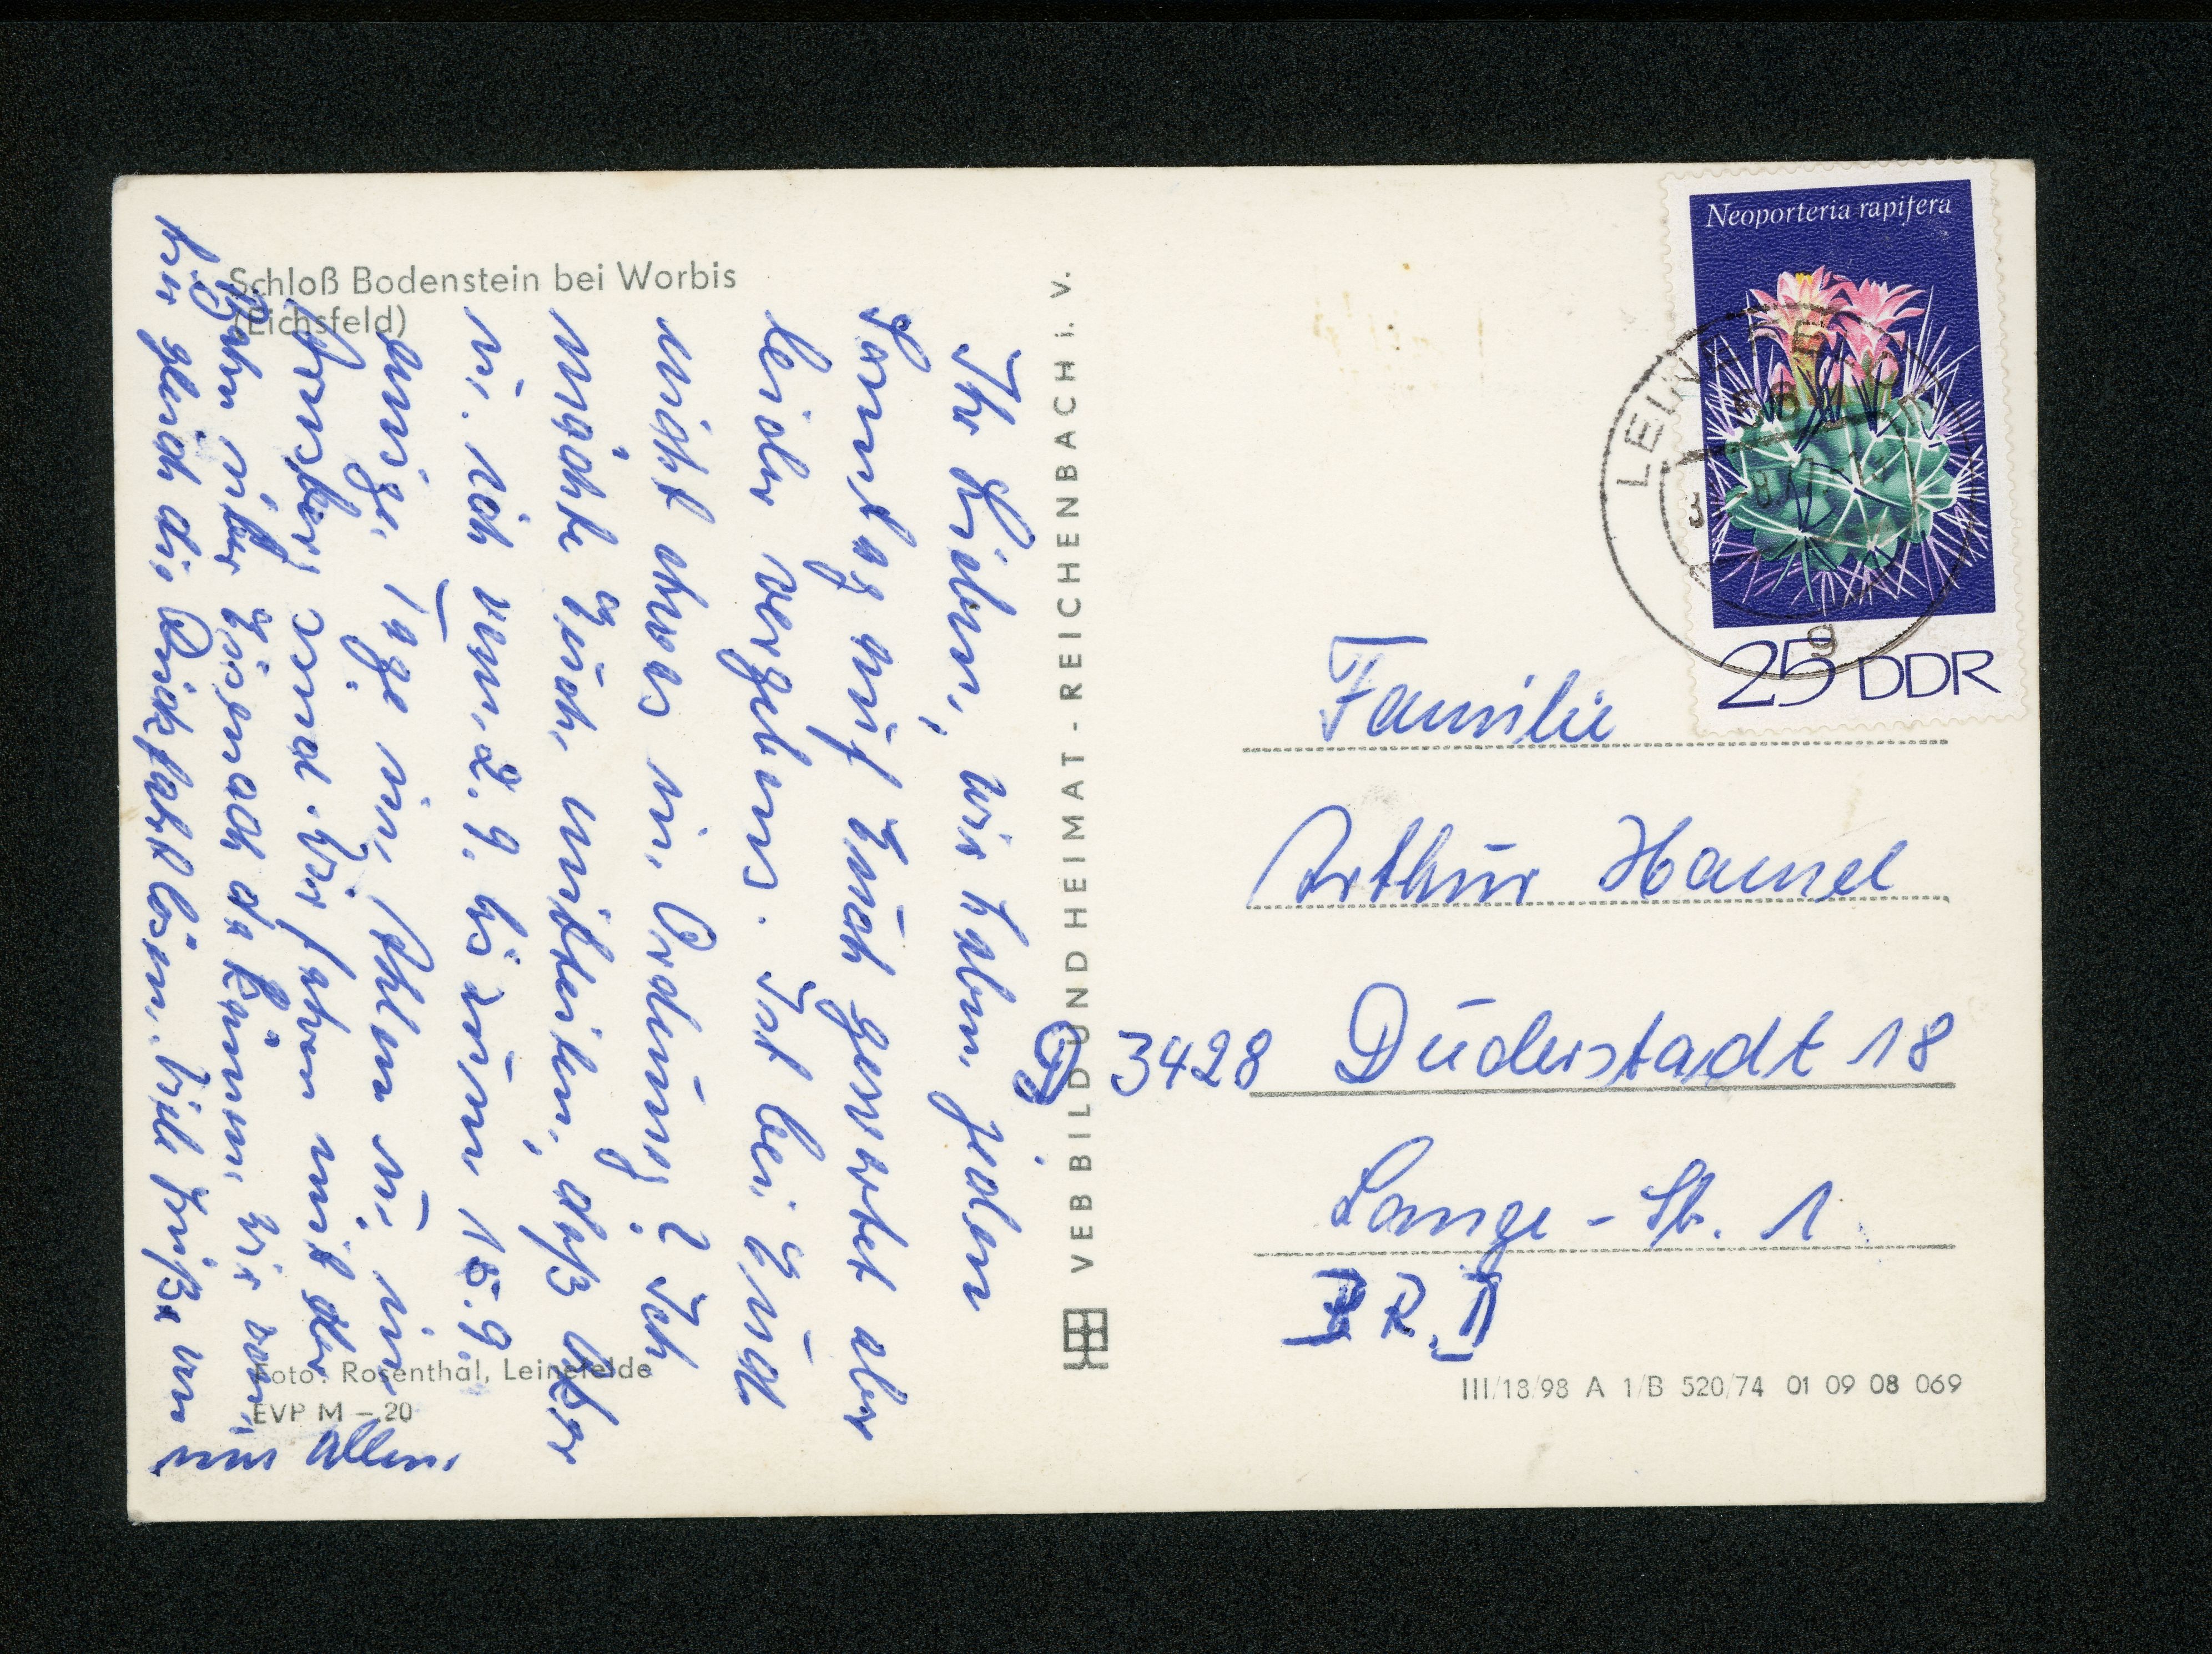 Schloß Bodenstein bei Worbis
(Eichsfeld)
Ihr Lieben, wir haben jeden
Sonntag auf Euch gewartet aber
leider vergebens. Ist bei Euch
nicht etwas in Ordnung? Ich
möchte Euch mitteilen, daß
u. ich vom 2.9. bis zum 15.9.
einige Tage in Ahlen u. in
sind. Wir fahren mit der
Bahn über da können wir
gleich die Rückfahrt lösen. Viele Grüße von
uns allen
Foto: Rosenthal, Leinefelde
EVP M – 20
VEB BILD UND HEIMAT - REICHENBACH i. V.
Neoporteria rapifera
25 DDR
LEINEFELDE
g
Familie
Arthur Hamel
3428 Duderstadt 18
Lange-Str. 1
BRD
III/18/98 A 1/B 520/74 01 09 08 069